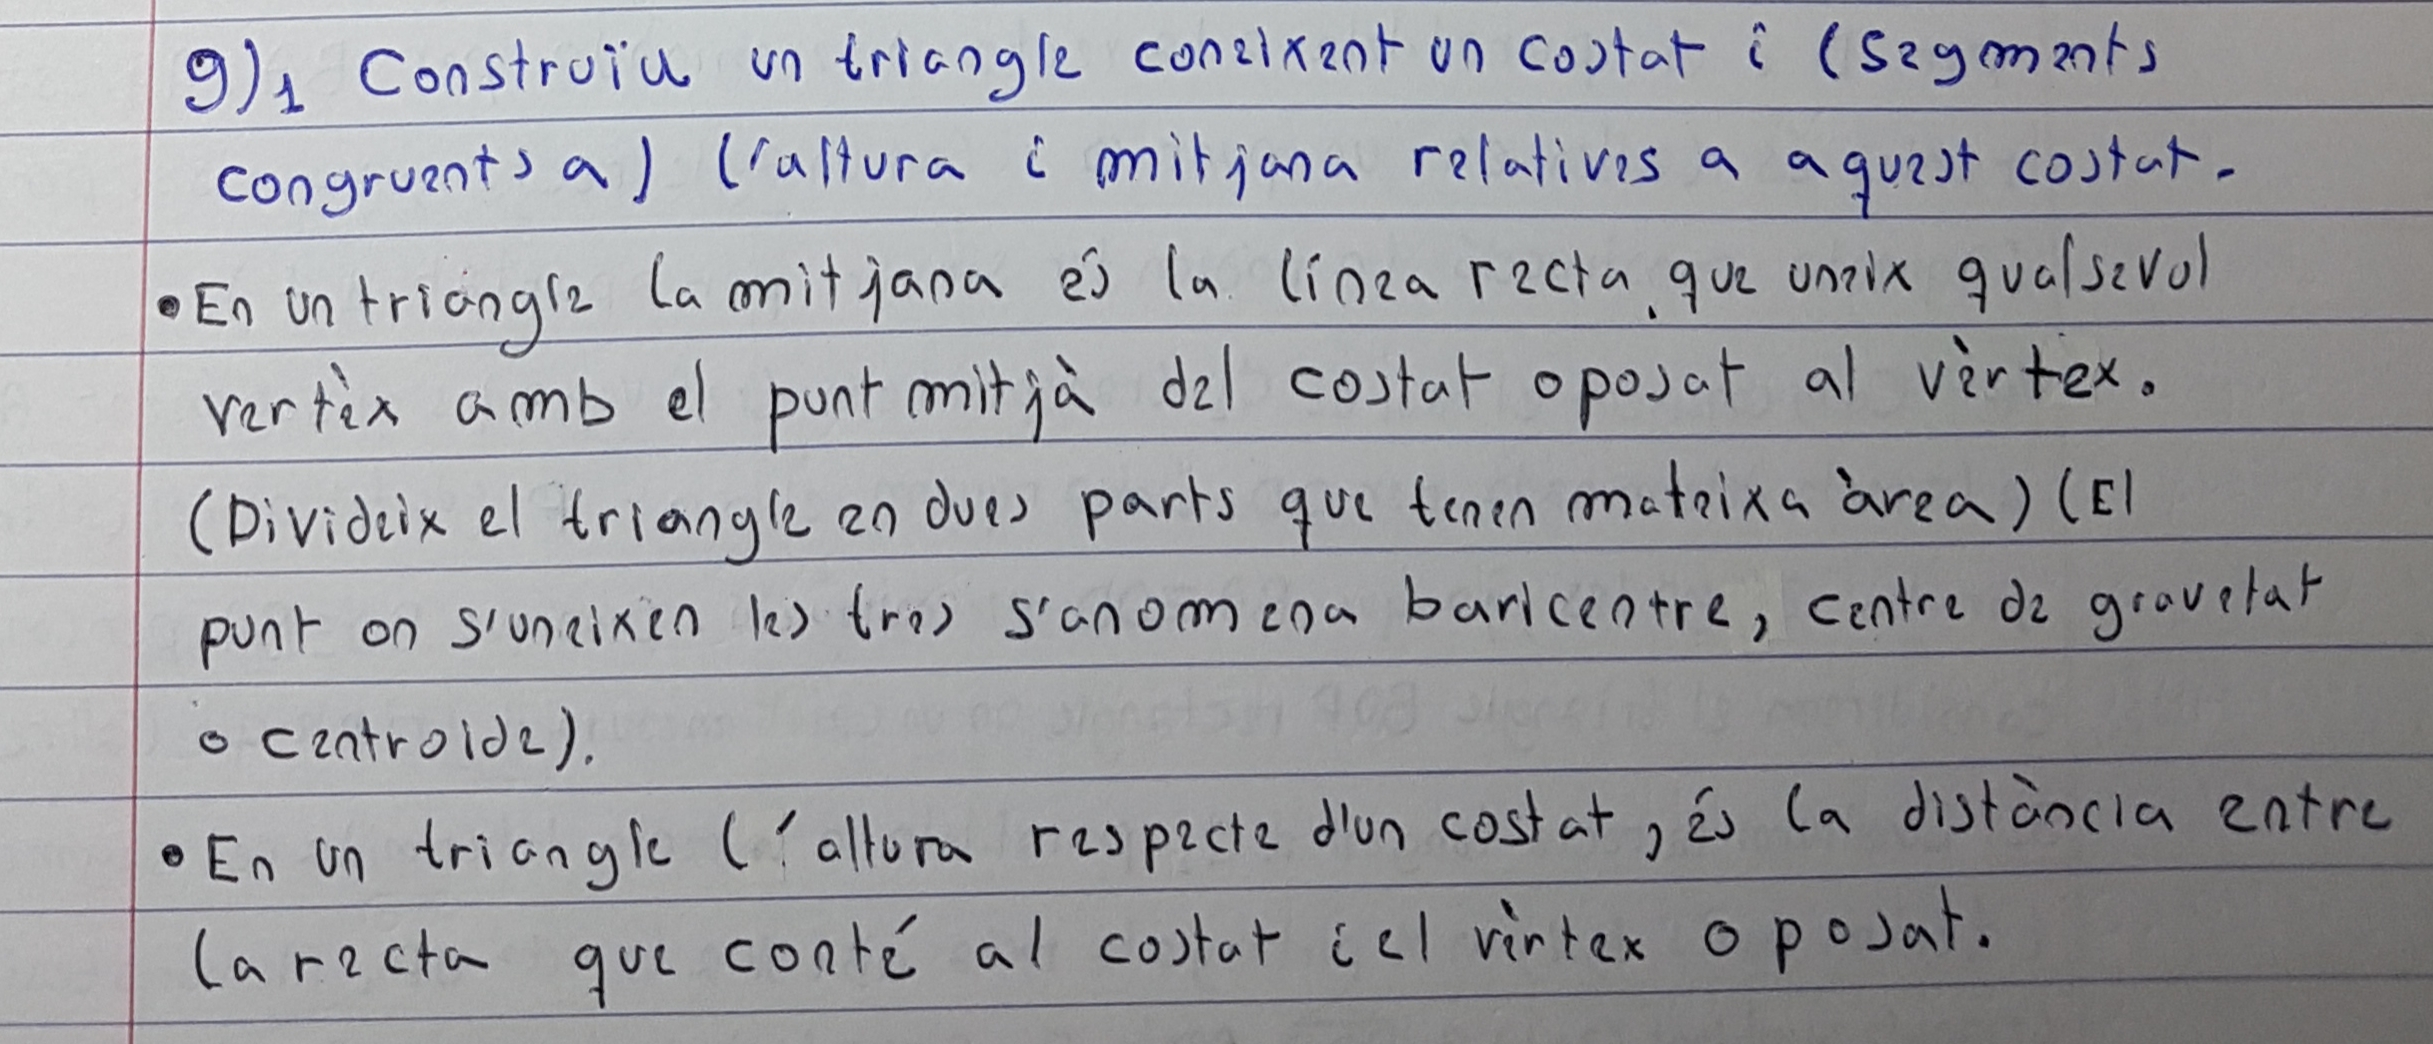 9)1 Construïu un triangle coneixent un costat i (segments
congruents a) l'altura i mitjana relatives a aquest costat.
• En un triangle la mitjana és la línea recta que uneix qualsevol
vertèx amb el punt mitjà del costat oposat al vèrtex.
(Divideix el triangle en dues parts que tenen mateixa àrea) (El
punt on s'uneixen les tres s'anomena baricentre, centre de gravetat
o centroide).
• En un triangle l'altura respecte d'un costat, és la distància entre
la recta que conté al costat i el vèrtex oposat.